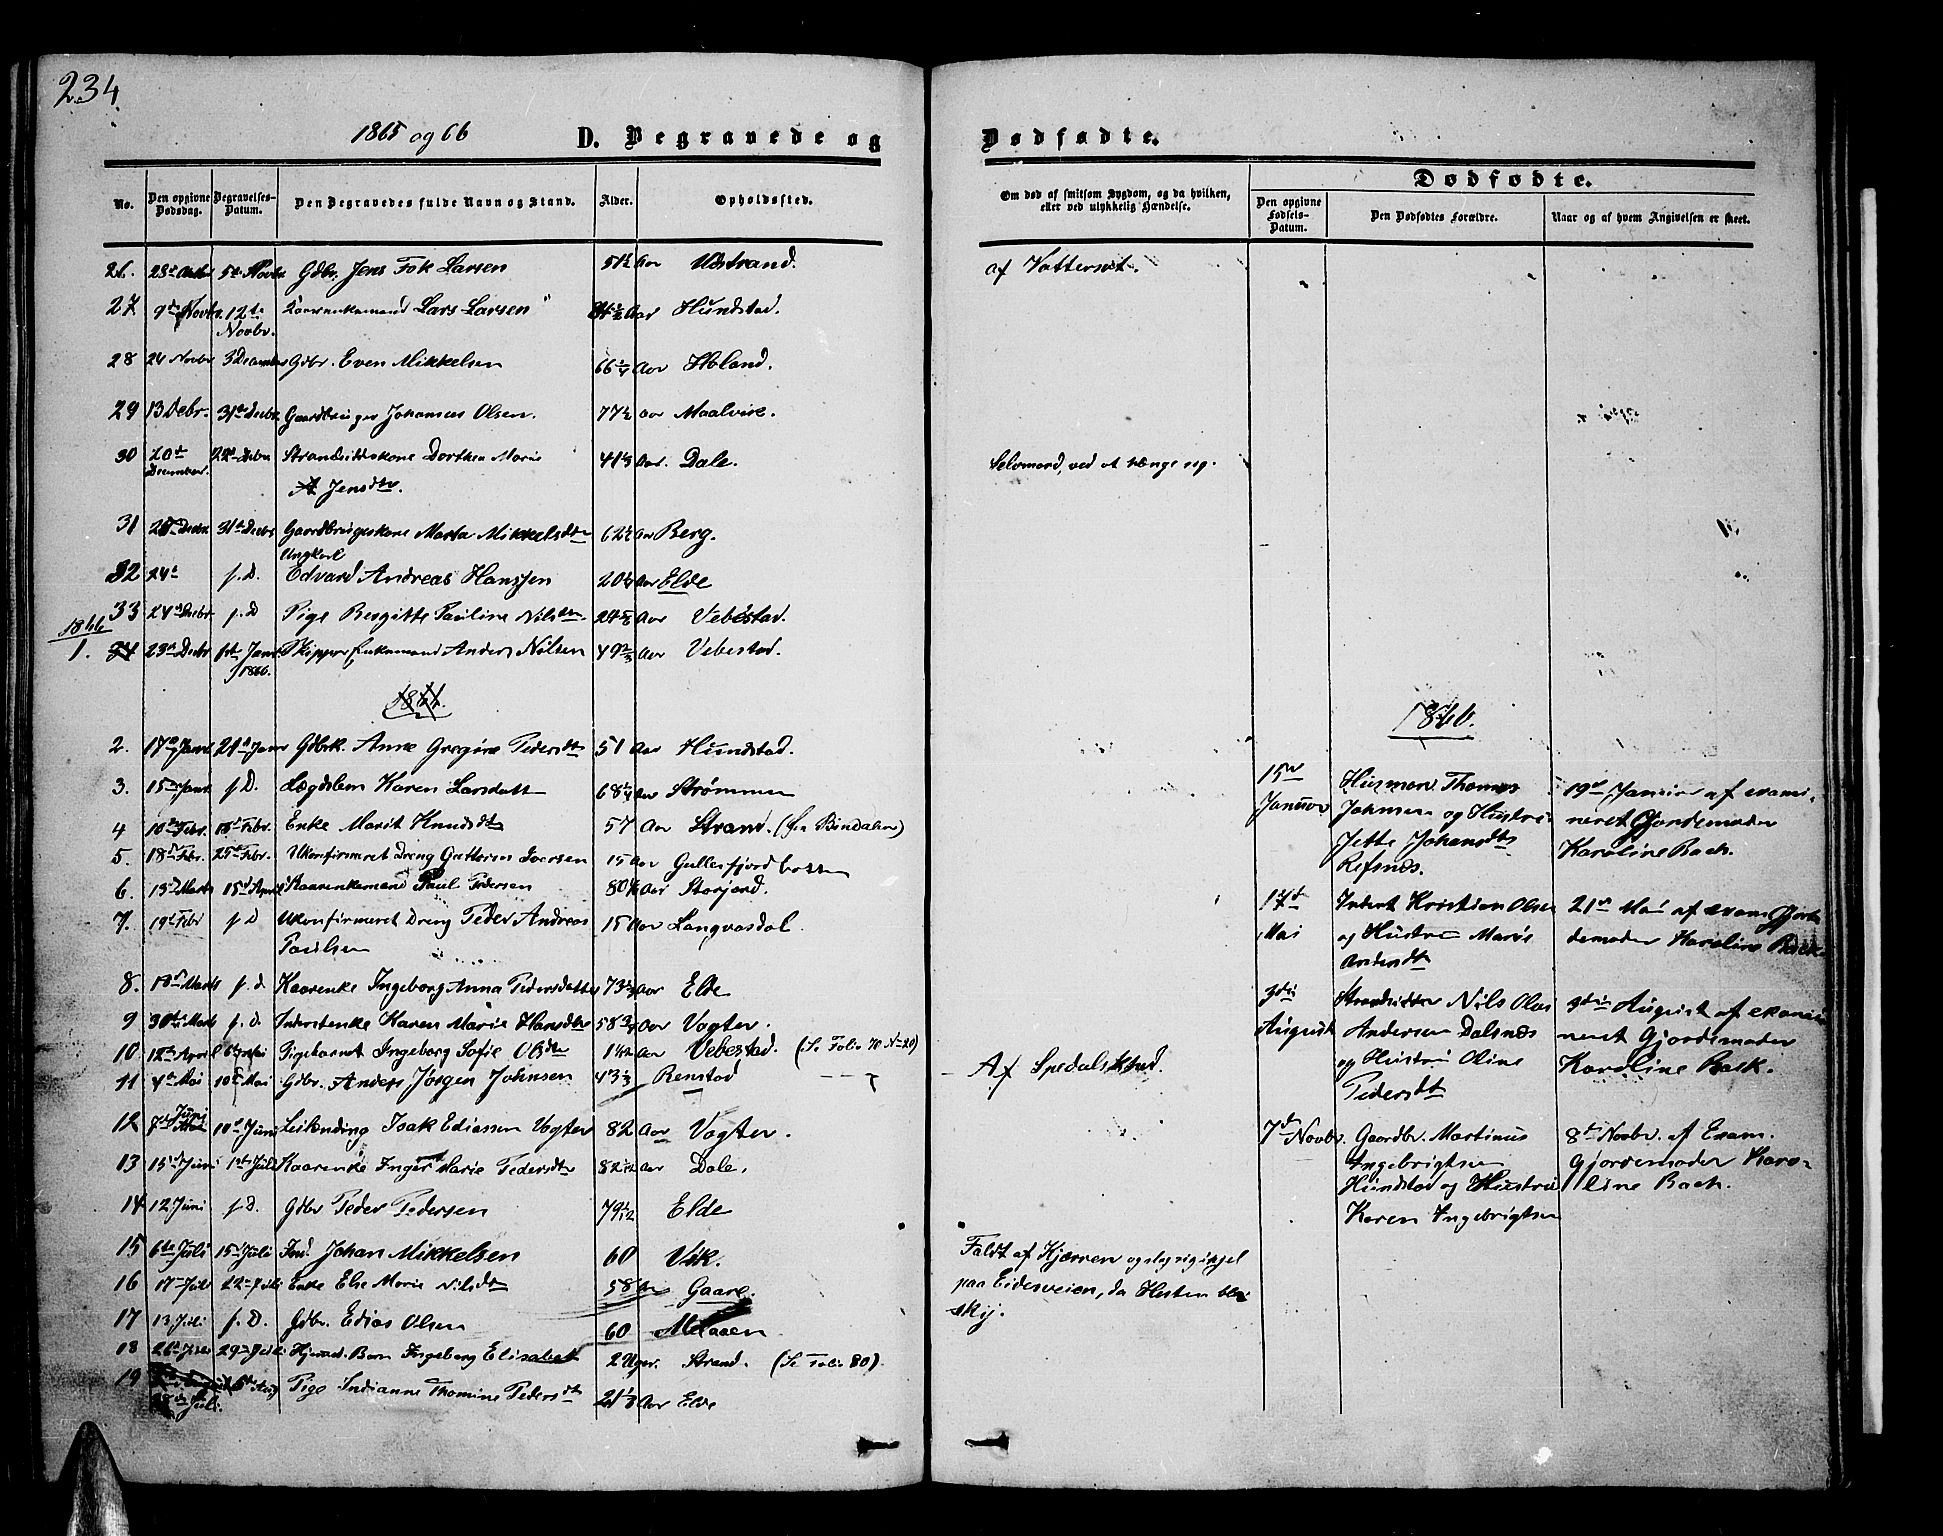 234
1865 og 66
D. Begravede og
Dødfødte.
No.
Den opgivne Dødsdag.
Begravelses-Datum.
Den Begravedes fulde Navn og Stand.
Alder.
Opholdssted.
Om død af smitsom Sygdom, og da hvilken, eller ved ulykkelig Hændelse.
Dødfødte.
Den opgivne Fødsels-Datum.
Den Dødfødtes Forældre.
Naar og af hvem Angivelsen er skeet.
26. 5te Novbr Gdbr. Jens Fok Larsen 51½ Aar
af Vattersot.
27 9de Novbr. 12te Novbr. Kaarenkemand Lars Larsen Aar Hundstad.
28 24 Novbr 3die December Gdbr. Even Mikkelsen 66¼ Aar Holand.
29 13 Debr. 31te Decbr. Gaardbruger Johannes Olsen. 77½ aar Maalvike.
30 20de December. 22de Debr Strandsidderkone Dorthea Marie
Jensdtr. 41⅓ Aar. Dale.
Selvmord, ved at hænge sig.
31 Decbr 31te Decbr Gaardbrugerkone Marta Mikkelsdtr 62½ Aar Berg.
32 24de s. D. Ungkarl
Edvard Andreas Hanssen 20¼ Aar Elde
33 24de Decbr s. D Pige Bergitte Pauline Nilsdtr. 24 Aar Vebestad.
1866
1. 34 23de Decbr 1ste Janr 1866. Skipper Enkemand Anders Nilsen 49⅔ Aar Vebestad.
1866.
1866.
2. 17de Janr 21de Janr Gdbrk. Anne Gregine Pedersdtr 51 Aar Hundstad.
3. 15de Janr s. D. Lægdslem Karen Larsdatter 68¼ Aar Strømmen
4 10de Febr. 18de Febr. Enke Marit Knudsdtr 57 Aar Strand. (fra Bindalen)
5. 18de Febr. 25de Febr. Ukonfirmeret Dreng Guttorm Iversen 15 Aar Gullesfjordbotten
6. 13de Marts 15de April Kaarenkemand Paul Pedersen 80½ Aar Storjord.
7. 19de Febr s. D Ukonfirmeret Dreng Peder Andreas
Paulsen 15 Aar Langvasdal.
8. 18de Marts s. d Kaarenke Ingeborg Anna Pedersdatter 73⅓ Aar Elde
9 30te Marts s. D. Inderstenke Karen Marie Hansdtr 58¾ Aar Vogter.
10. 12te April 6te Mai Pigebarnet Ingeborg Sofie Olsdtr 1 1/12 Aar Vebestad. (Se Folio 70 No 20)
11 4de Mai 10de Mai Gdbr. Anders Jørgen Johnsen 43⅓ Aar Renstad
Af Spedalskhed.
12 7de Juni 10de Juni Leilending Isak Ediassen Vogter 82 Aar Vogter.
13 15de Juni 1ste Juli Kaarenke Inger Marie Pedersdtr 82 Aar Dale.
14 12 Juni s. D. Gdbr Peder Pedersen 79 1/12 Elde
15 6te Juli 15de Juli Ind. Johan Mikkelsen 60 Vik.
Faldt af Kjærren og slog sig ihjel
paa Eidesveien, da Hesten blev
sky.
16 17de Juli 22de Juli Enke Else Marie Nilsdtr 58 Aar Gaare.
17 13 Juli s. D. Gdbr. Edias Olsen 60 Melaaen.
18 26de Juli 29de Juli Hjemmed. Barn Ingeborg Elisabeth 2 Uger. Strand. (Se Folio 80).
19 Juli. 5te Aug Pige Indianne Thomine Pedersdtr 21⅓ Aar Elde
15de
Januar
Husmand Thomas
Johnsen og Hustru
Jette Johansdtr
Refsnes.
19de Januar af exami-
neret Gjordemoder
Karoline Bach.
17de
Mai
Inderst Kristian Olsen
og Hustru Marie
Andersdtr
21de Mai af exam Gjor-
demoder Karoline Bach
3die
August
Strandsidder Nils Olai
Andersen Dalsnæs
og Hustru Oline
Pedersdtr
9de August af exami-
neret Gjordemoder
Karoline Bach.
7de Novbr.
Gaardbr. Martinus
Ingebrigtsen
Hundstad og Hustru
Karen Ingebrigtsen
8de Novbr. af Exam.
Gjordemoder Karo-
line Bach.